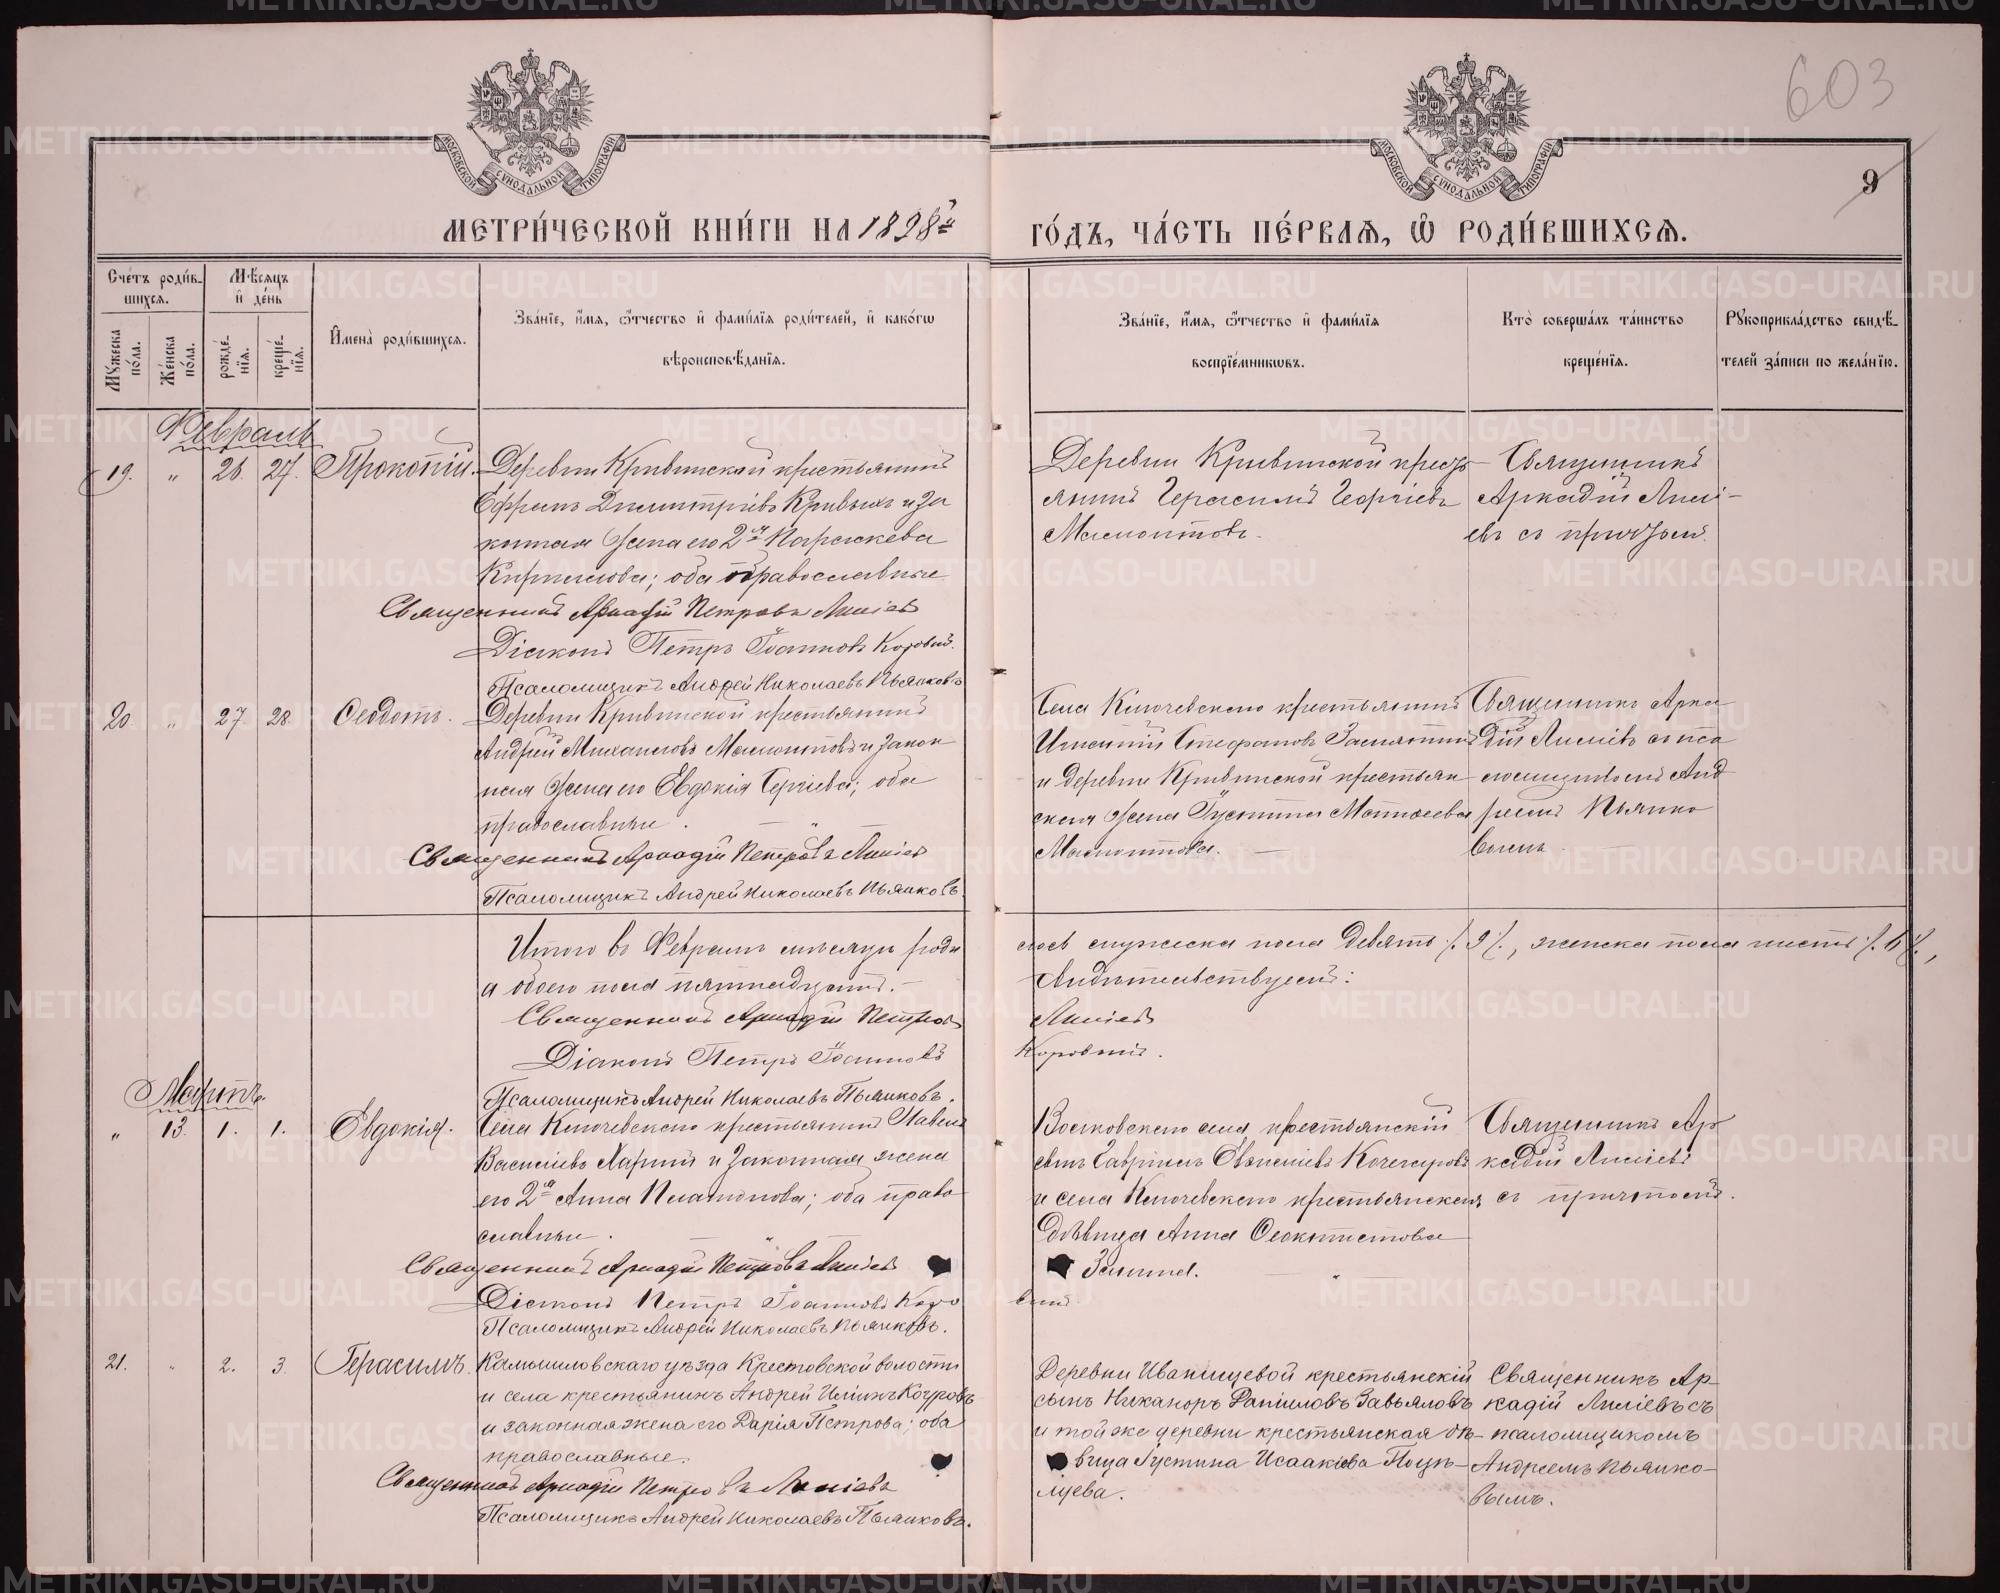 603
МОСКОВСКОЙ СѴНОДАЛЬНОЙ ТИПОГРАФІИ
МОСКОВСКОЙ СѴНОДАЛЬНОЙ ТИПОГРАФІИ
9
МЕТРИ́ЧЕСКОЙ КНИ́ГИ НА 1898й
ГО́ДЪ, ЧА́СТЬ ПЕ́РВАѦ, Ѽ РОДИ́ВШИХСѦ.
Сче́тъ роди́в-
шихсѧ.
Мѣ́сѧцъ
и҆ де́нь
Мꙋ́жеска по́ла.
Же́нска по́ла.
рожде́нїѧ.
креще́нїѧ.
И҆мена̀ роди́вшихсѧ.
Зва́нїе, и҆́мѧ, ѻ҆́тчество и҆ фами́лїѧ роди́телей, и҆ како́гѡ
вѣроисповѣ́данїѧ.
Зва́нїе, и҆́мѧ, ѻ҆́тчество и҆ фами́лїѧ
воспрїе́мникѡвъ.
Кто̀ соверша́лъ та́инство
креще́нїѧ.
Рꙋкоприкла́дство свидѣ́-
телей за́писи по жела́нїю.
Февраль
19. " 26. 27. Прокопій.
Деревни Кривинской крестьянинъ
Ефремъ Димитріевъ Кривыхъ и за
конная жена его 2я Параскева
Кириллова; оба православные
Священникъ Аркадій Петровъ Лиліевъ
Діаконъ Петръ Іоанновъ Коровинъ.
Псаломщикъ Андрей Николаевъ Пьянковъ
Деревни Кривинской кресть-
янинъ Герасимъ Георгіевъ
Мамонтовъ.
Священникъ
Аркадій Лилі-
евъ съ причтомъ.
20. " 27. 28. Ѳеодотъ.
Деревни Кривинской крестьянинъ
Андрей Михаиловъ Мамонтовъ и закон
ная жена его Евдокія Сергіева; оба
православные.
Священникъ Аркадій Петровъ Лиліевъ
Псаломщикъ Андрей Николаевъ Пьянковъ.
Села Ключевскаго крестьянинъ
Игнатій Стефановъ Замятинъ
и деревни Кривинской крестьян
ская жена Іустина Матѳеева
Мамонтова.
Священникъ Арка
дій Лиліевъ съ пса
ломщикомъ Анд
реемъ Пьянко
вымъ.
Итого въ Февралѣ мѣсяцѣ роди
лось мужеска пола девять /. 9 /., женска пола шесть /. 6 /.,
а обоего пола пятнадцать.
Свидѣтельствуемъ:
Священникъ Аркадій Петровъ
Лиліевъ
Діаконъ Петръ Іоанновъ
Коровинъ.
Псаломщикъ Андрей Николаевъ Пьянковъ.
Мартъ
" 13. 1. 1. Евдокія.
Села Ключевскаго крестьянинъ Павелъ
Василіевъ Ларинъ и законная жена
его 2я Анна Платонова; оба право
славные.
Священникъ Аркадій Петровъ Лиліевъ
Діаконъ Петръ Іоанновъ Коро
винъ.
Псаломщикъ Андрей Николаевъ Пьянковъ.
Волковскаго села крестьянскій
сынъ Гавріилъ Евменіевъ Кочегаровъ
и села Ключевскаго крестьянская
дѣвица Анна Ѳеоктистова
Священникъ Ар
кадій Лиліевъ
съ причтомъ.
21. " 2. 3. Герасимъ.
Камышловскаго уѣзда Крестовской волости
и села крестьянинъ Андрей Иліинъ Кочуровъ
и законная жена его Дарія Петрова; оба
православные.
Священникъ Аркадій Петровъ Лиліевъ
Псаломщикъ Андрей Николаевъ Пьянковъ.
Деревни Иванищевой крестьянскій
сынъ Никаноръ Даніиловъ Завьяловъ
и той же деревни крестьянская дѣ-
вица Іустина Исаакіева Поцѣ-
луева.
Священникъ Ар-
кадій Лиліевъ съ
псаломщикомъ
Андреемъ Пьянко-
вымъ.
METRIKI.GASO-URAL.RU